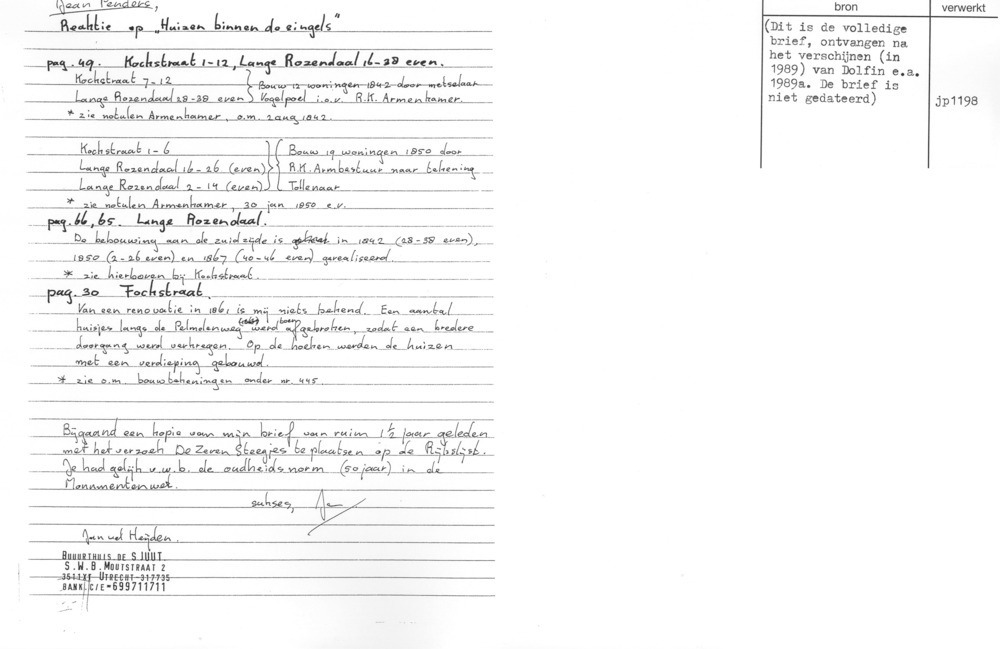 Jean Penders,
Reaktie op "Huizen binnen de singels"
pag. 49. Kochstraat 1-12, Lange Rozendaal 16-38 even.
Kochstraat 7-12
Lange Rozendaal 28-38 even
Bouw 12 woningen 1842 door metselaar
Vogelpoel i.o.v. R.K. Armenkamer.
* zie notulen Armenkamer, o.m. 2 aug 1842.
Kochstraat 1-6
Lange Rozendaal 16-26 (even)
Lange Rozendaal 2-14 (even)
Bouw 19 woningen 1850 door
R.K. Armbestuur naar tekening
Tollenaar
* zie notulen Armenkamer, 30 jan 1850 e.v.
pag. 66, 65. Lange Rozendaal.
De bebouwing aan de zuidzijde is in 1842 (28-38 even),
1850 (2-26 even) en 1867 (40-46 even) gerealiseerd.
* zie hierboven bij Kochstraat.
pag. 30 Fochstraat.
Van een renovatie in 1861 is mij niets bekend. Een aantal
huisjes langs de Pelmolenweg werd toen afgebroken, zodat een bredere
doorgang werd verkregen. Op de hoeken werden de huizen
met een verdieping gebouwd.
* zie o.m. bouwtekeningen onder nr. 445.
Bijgaand een kopie van mijn brief van ruim 1 1/2 jaar geleden
met het verzoek De Zeven Steegjes te plaatsen op de Rijkslijst.
Je had gelijk v.w.b. de oudheidsnorm (50 jaar) in de
Monumentenwet.
sukses,
Jan vd Heijden.
BUUURTHUIS DE SJUUT
S.W.B. MOUTSTRAAT 2
3511XT UTRECHT-317735
BANK C/E=699711711
bron
verwerkt
(Dit is de volledige
brief, ontvangen na
het verschijnen (in
1989) van Dolfin e.a.
1989a. De brief is
niet gedateerd)
jp1198